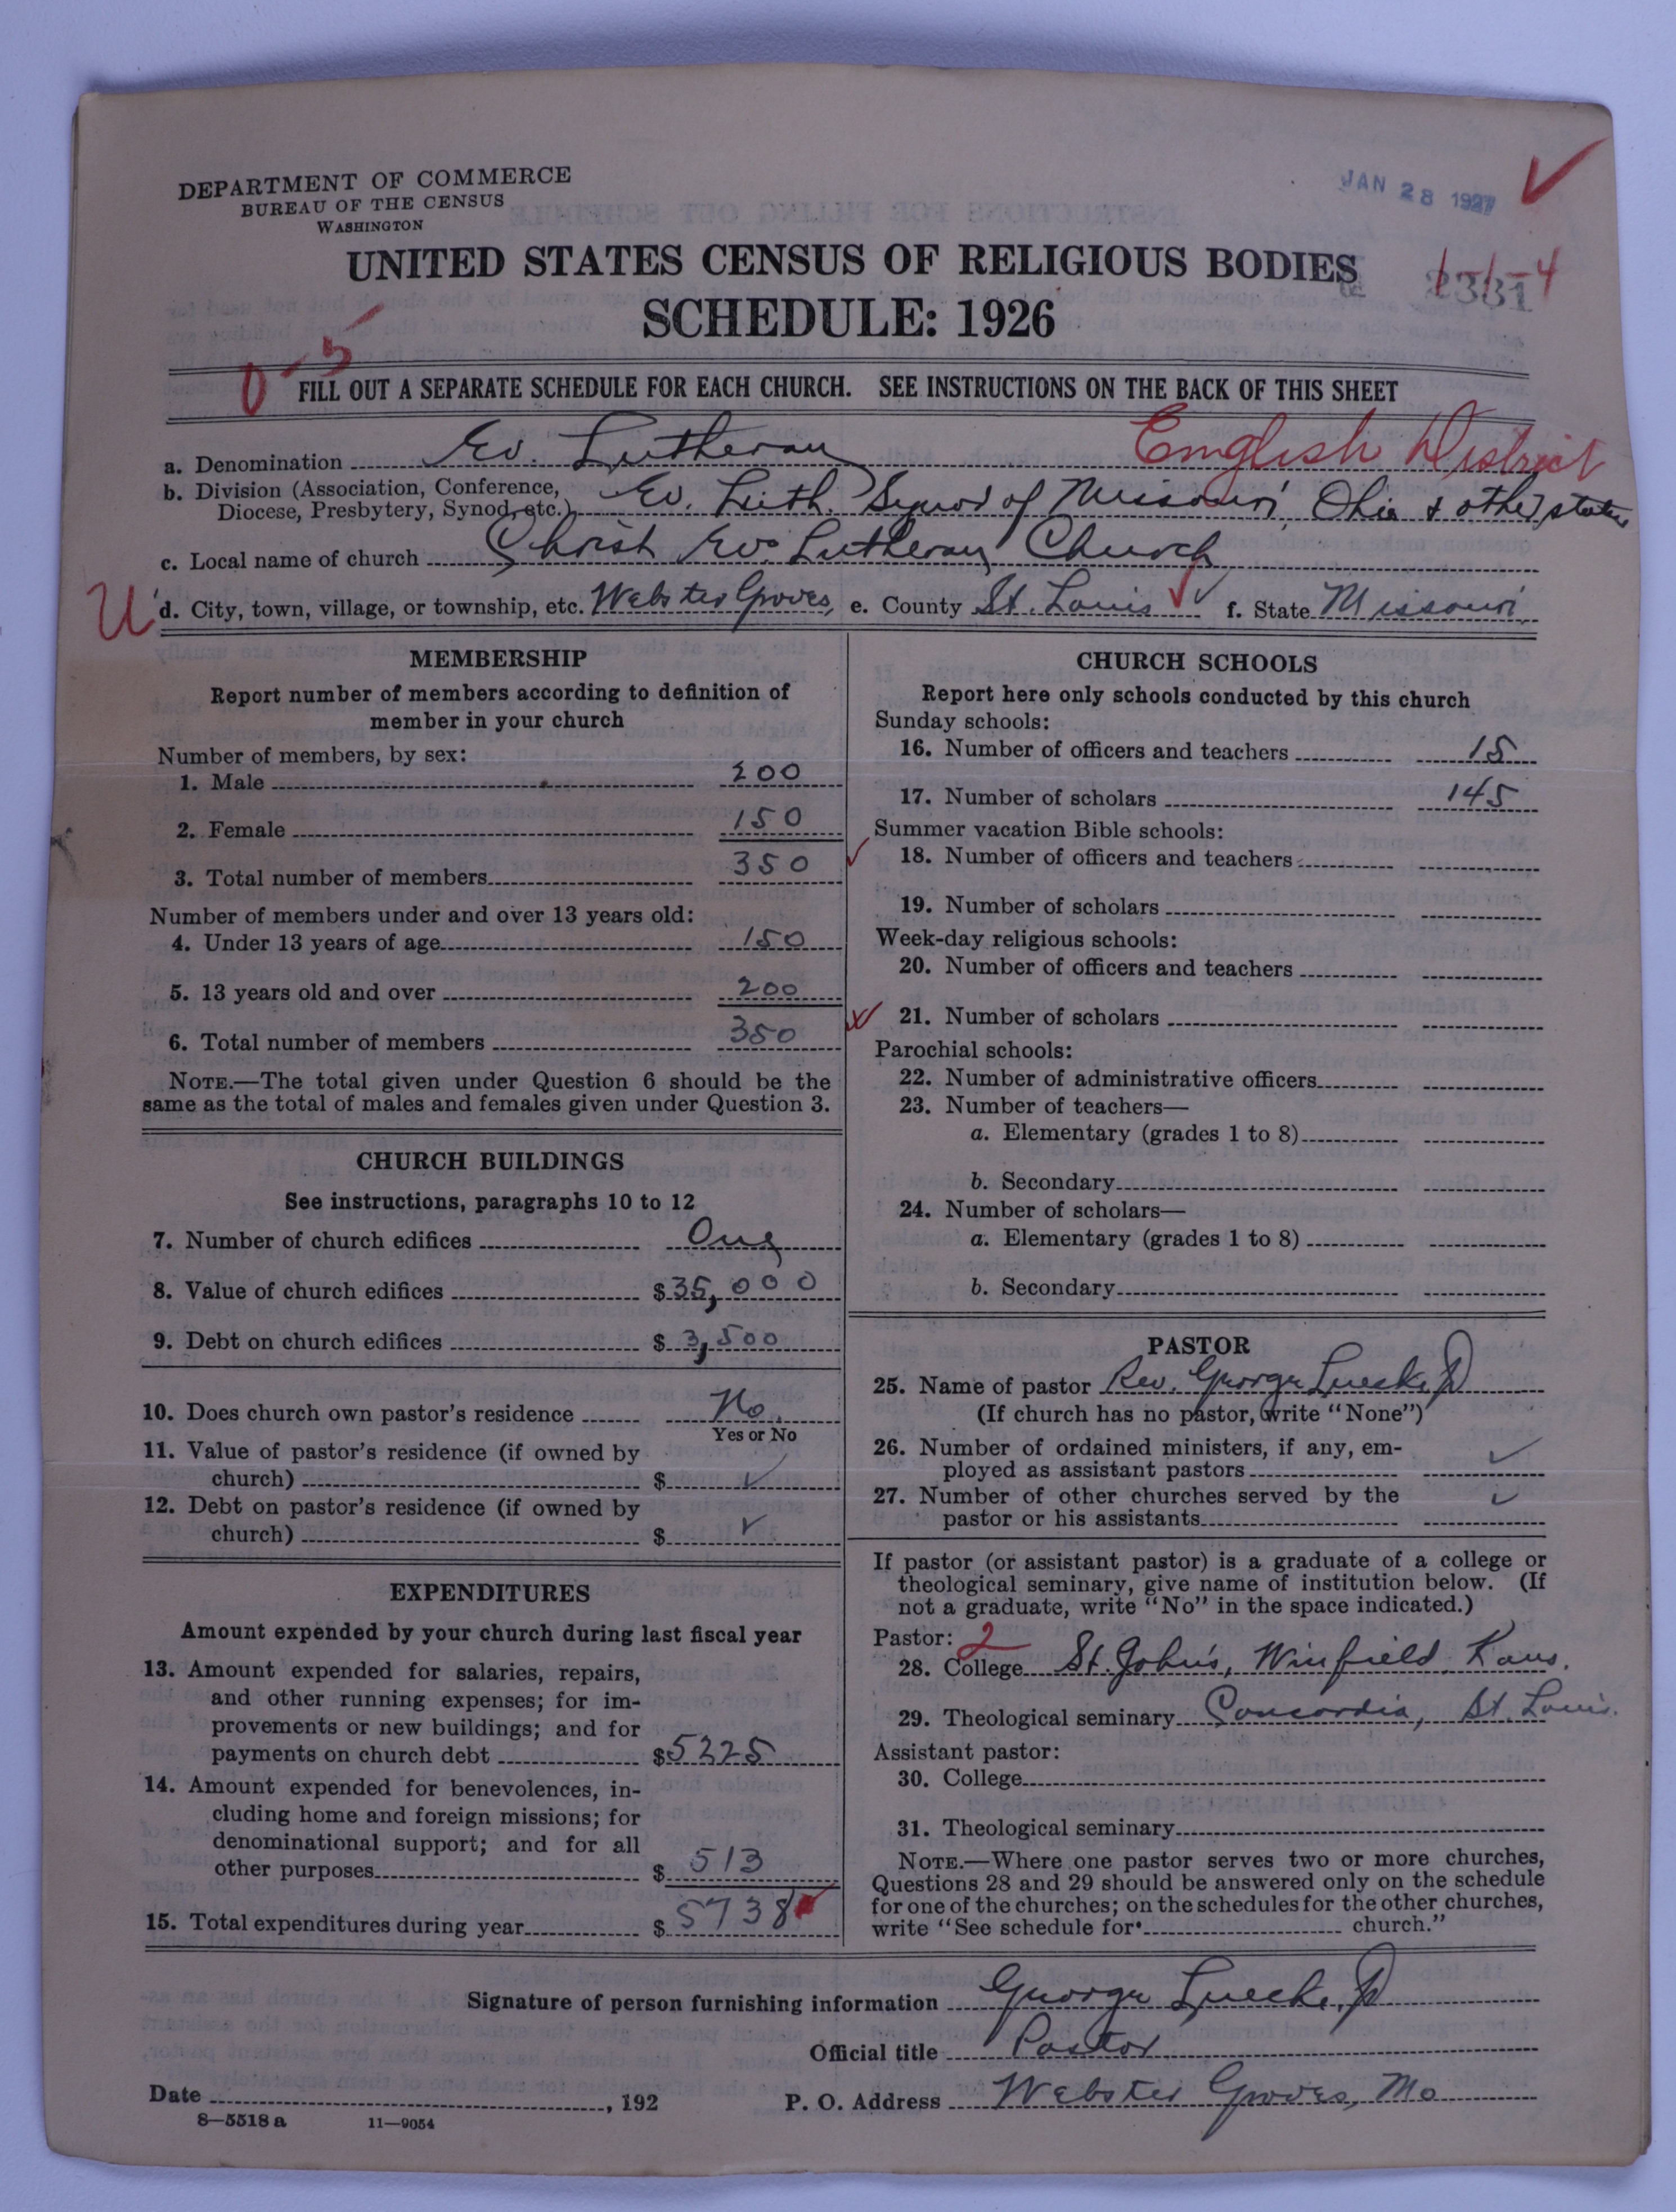 DEPARTMENT OF COMMERCE
BUREAU OF THE CENSUS
WASHINGTON
JAN 28 1927
UNITED STATES CENSUS OF RELIGIOUS BODIES
SCHEDULE: 1926
0-5
FILL OUT A SEPARATE SCHEDULE FOR EACH CHURCH. SEE INSTRUCTIONS ON THE BACK OF THIS SHEET
a. Denomination Ev. Lutheran English District
b. Division (Association, Conference,
Diocese, Presbytery, Synod, etc.) Ev. Luth. Synod of Missouri, Ohio & other states
c. Local name of church Christ Ev. Lutheran Church
U d. City, town, village, or township, etc. Webster Groves, e. County St. Louis f. State Missouri
MEMBERSHIP
Report number of members according to definition of
member in your church
Number of members, by sex:
1. Male 200
2. Female 150
3. Total number of members 350
Number of members under and over 13 years old:
4. Under 13 years of age 150
5. 13 years old and over 200
6. Total number of members 350
NOTE.—The total given under Question 6 should be the
same as the total of males and females given under Question 3.
CHURCH BUILDINGS
See instructions, paragraphs 10 to 12
7. Number of church edifices One
8. Value of church edifices $35,000
9. Debt on church edifices $3,500
10. Does church own pastor's residence No.
Yes or No
11. Value of pastor's residence (if owned by
church) $ ✓
12. Debt on pastor's residence (if owned by
church) $ ✓
EXPENDITURES
Amount expended by your church during last fiscal year
13. Amount expended for salaries, repairs,
and other running expenses; for im-
provements or new buildings; and for
payments on church debt $5225
14. Amount expended for benevolences, in-
cluding home and foreign missions; for
denominational support; and for all
other purposes $ 513
15. Total expenditures during year $ 5738
CHURCH SCHOOLS
Report here only schools conducted by this church
Sunday schools:
16. Number of officers and teachers 15
17. Number of scholars 145
Summer vacation Bible schools:
18. Number of officers and teachers
19. Number of scholars
Week-day religious schools:
20. Number of officers and teachers
21. Number of scholars
Parochial schools:
22. Number of administrative officers
23. Number of teachers—
a. Elementary (grades 1 to 8)
b. Secondary
24. Number of scholars—
a. Elementary (grades 1 to 8)
b. Secondary
PASTOR
25. Name of pastor Rev. George Luecke,
(If church has no pastor, write "None")
26. Number of ordained ministers, if any, em-
ployed as assistant pastors ✓
27. Number of other churches served by the
pastor or his assistants ✓
If pastor (or assistant pastor) is a graduate of a college or
theological seminary, give name of institution below. (If
not a graduate, write "No" in the space indicated.)
Pastor: 2
28. College St. John's, Winfield, Kans.
29. Theological seminary Concordia, St. Louis.
Assistant pastor:
30. College
31. Theological seminary
NOTE.—Where one pastor serves two or more churches,
Questions 28 and 29 should be answered only on the schedule
for one of the churches; on the schedules for the other churches,
write "See schedule for church."
Signature of person furnishing information George Luecke,
Official title Pastor
Date , 192 P. O. Address Webster Groves, Mo
8—5518 a 11—9054